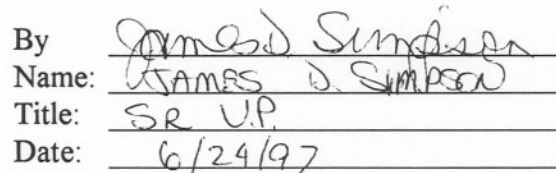 By James D. Simpson
Name: JAMES D. SIMPSON
Title: SR V.P.
Date: 6/24/97